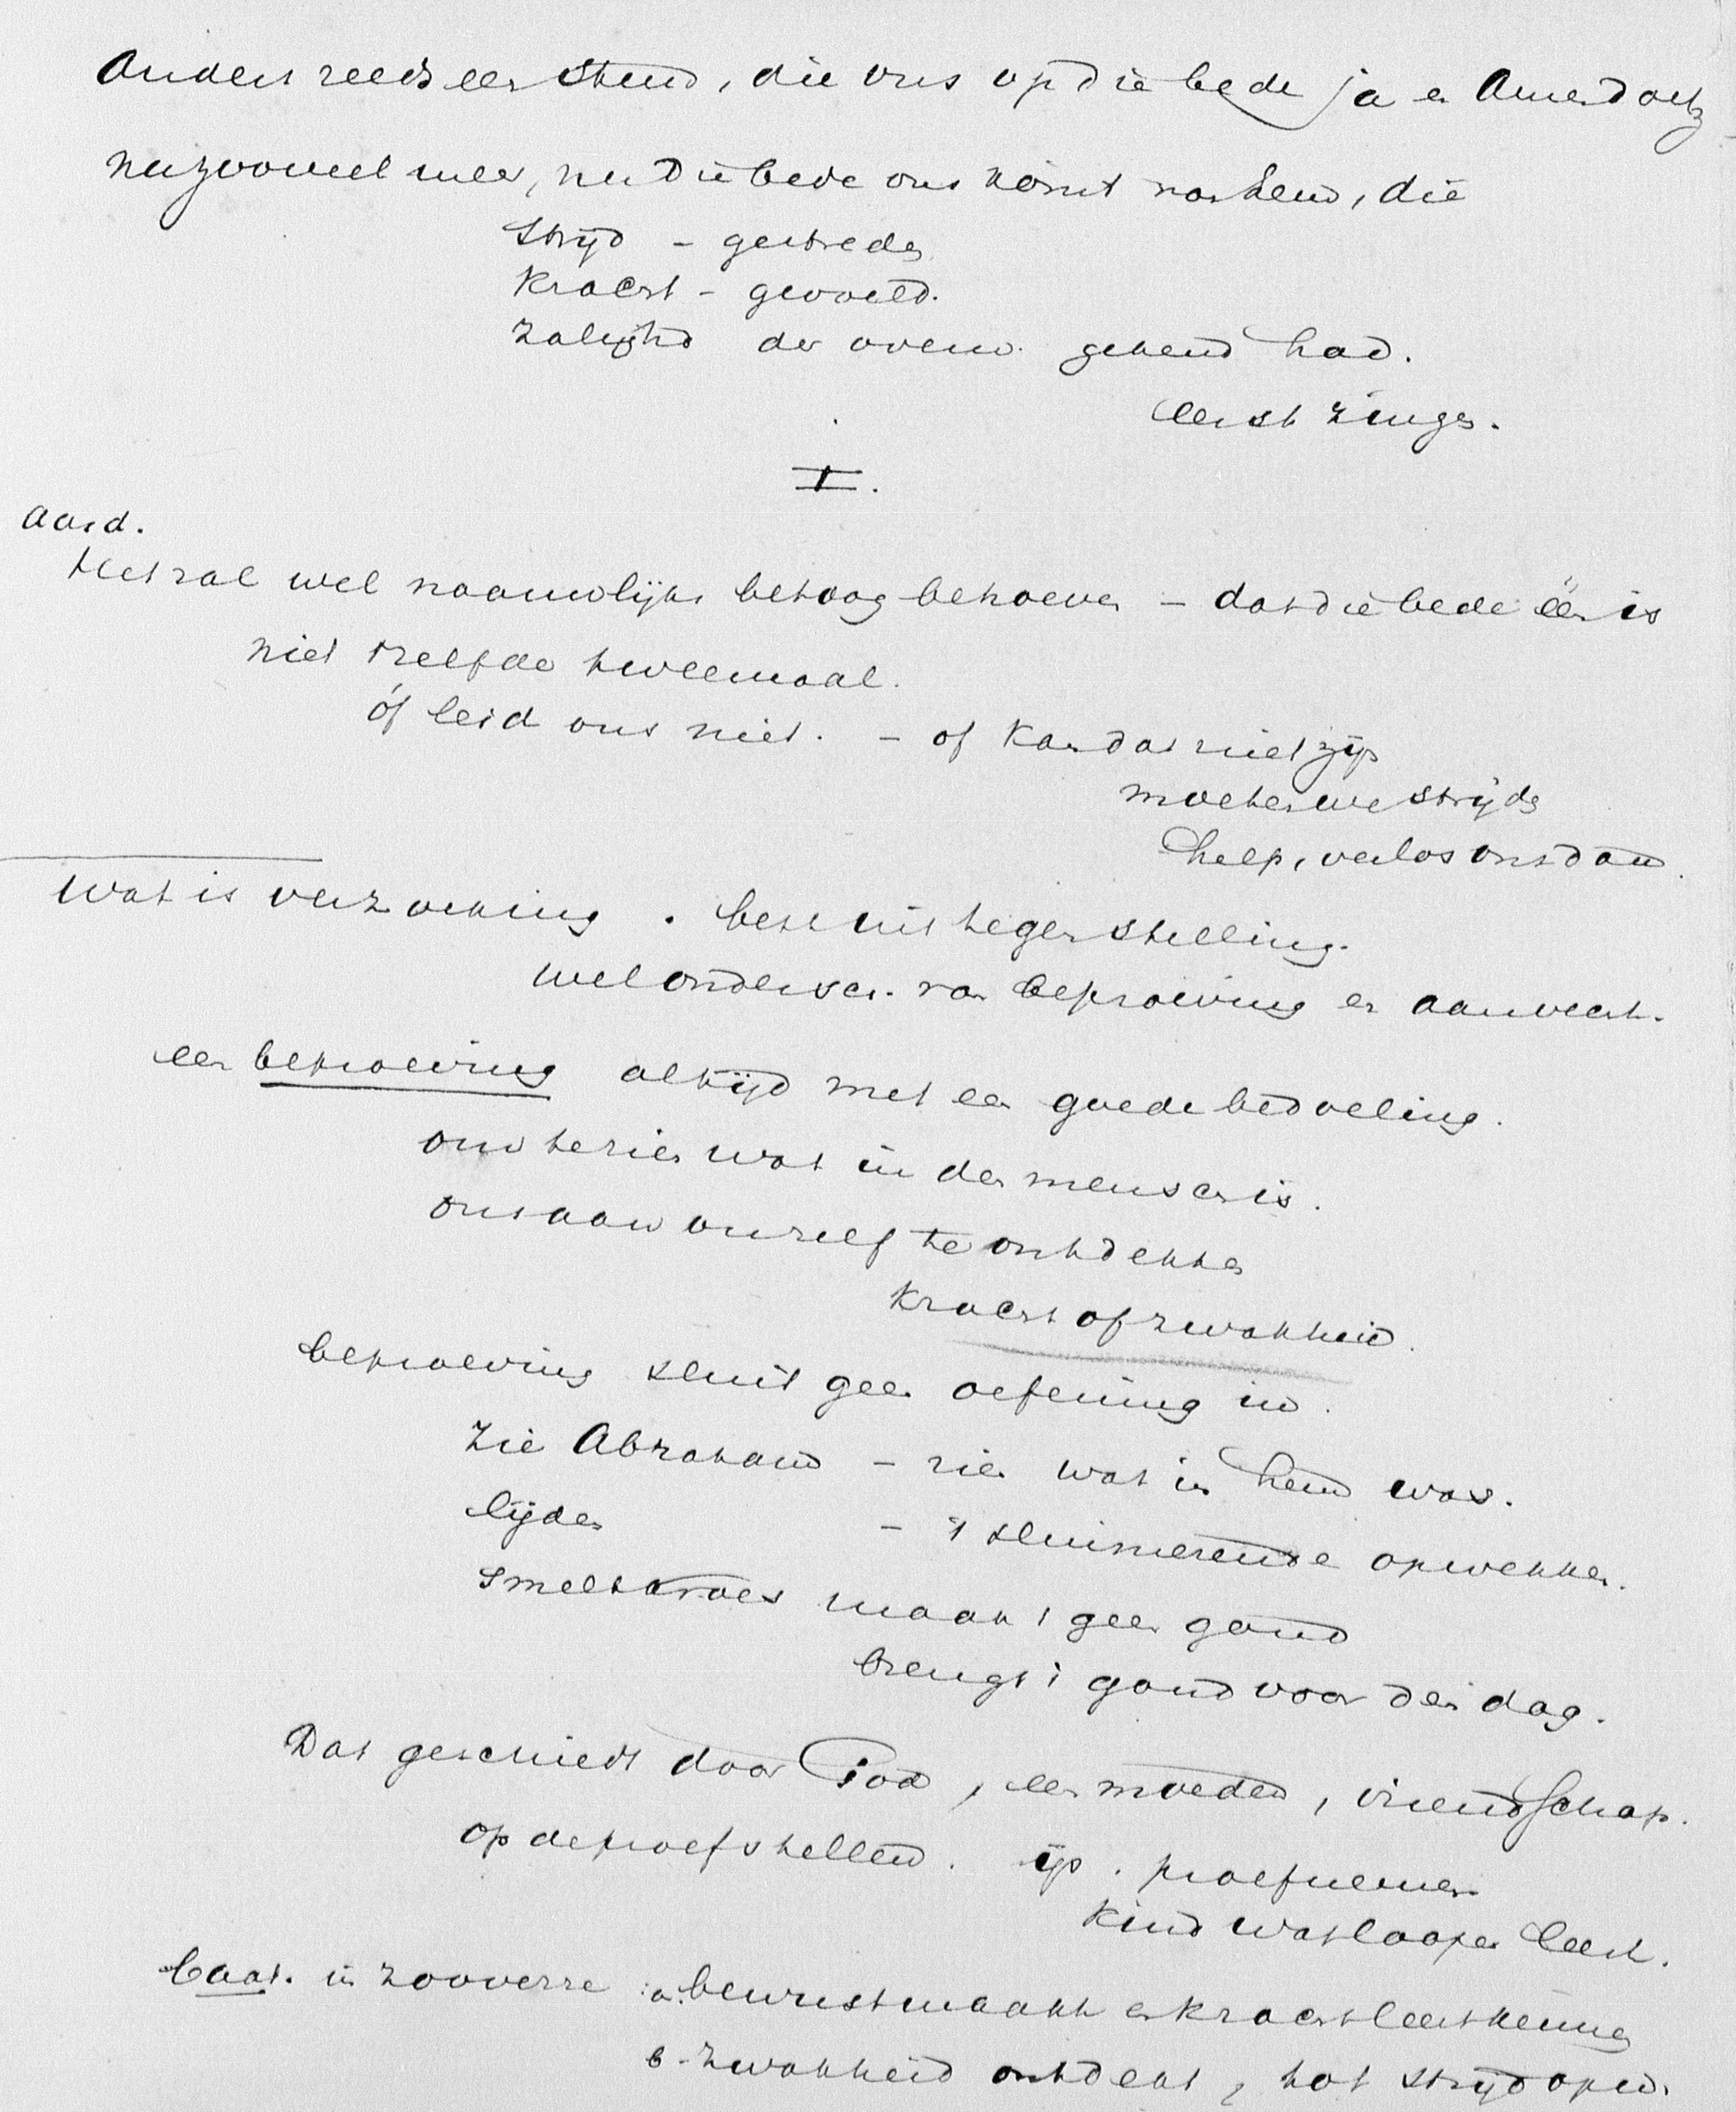 Anders reeds een stem, die ons op die bede ja en Amen doet z
nu zooveel meer, nu die bede ons komt van hem, die
strijd - gestreden
Kracht - gevoeld.
Zalighd der overw. gekend had.
eerst zingen.
I.
Aard.
Het zal wel naauwlijks betoog behoeven - dat die bede één is
niet tzelfde tweemaal.
óf leid ons niet. - of kan dat niet zijn
moeten we strijden
help, verlos ons dan.
Wat is verzoeking . best uit tegenstelling.
wel ondersch. van beproeving en aanvecht.
een beproeving altijd met een goede bedoeling.
om te zien wat in den mensch is.
ons aan onszelf te ontdekken
Kracht of zwakheid.
beproeving sluit geen oefening in.
Zie Abraham - zien wat in hem was.
lijden - 't sluimerende opwekken.
Smeltkroes maakt geen goud
brengt 't goud voor den dag.
Dat geschiedt door God, een moeder, vriendschap.
op de proef stellen. ijs. proefnemen
Kind wat loopen leert.
baat. in zooverre a. bewust maakt en kracht leert kennen
b - zwakheid ontdekt, tot strijd opw.